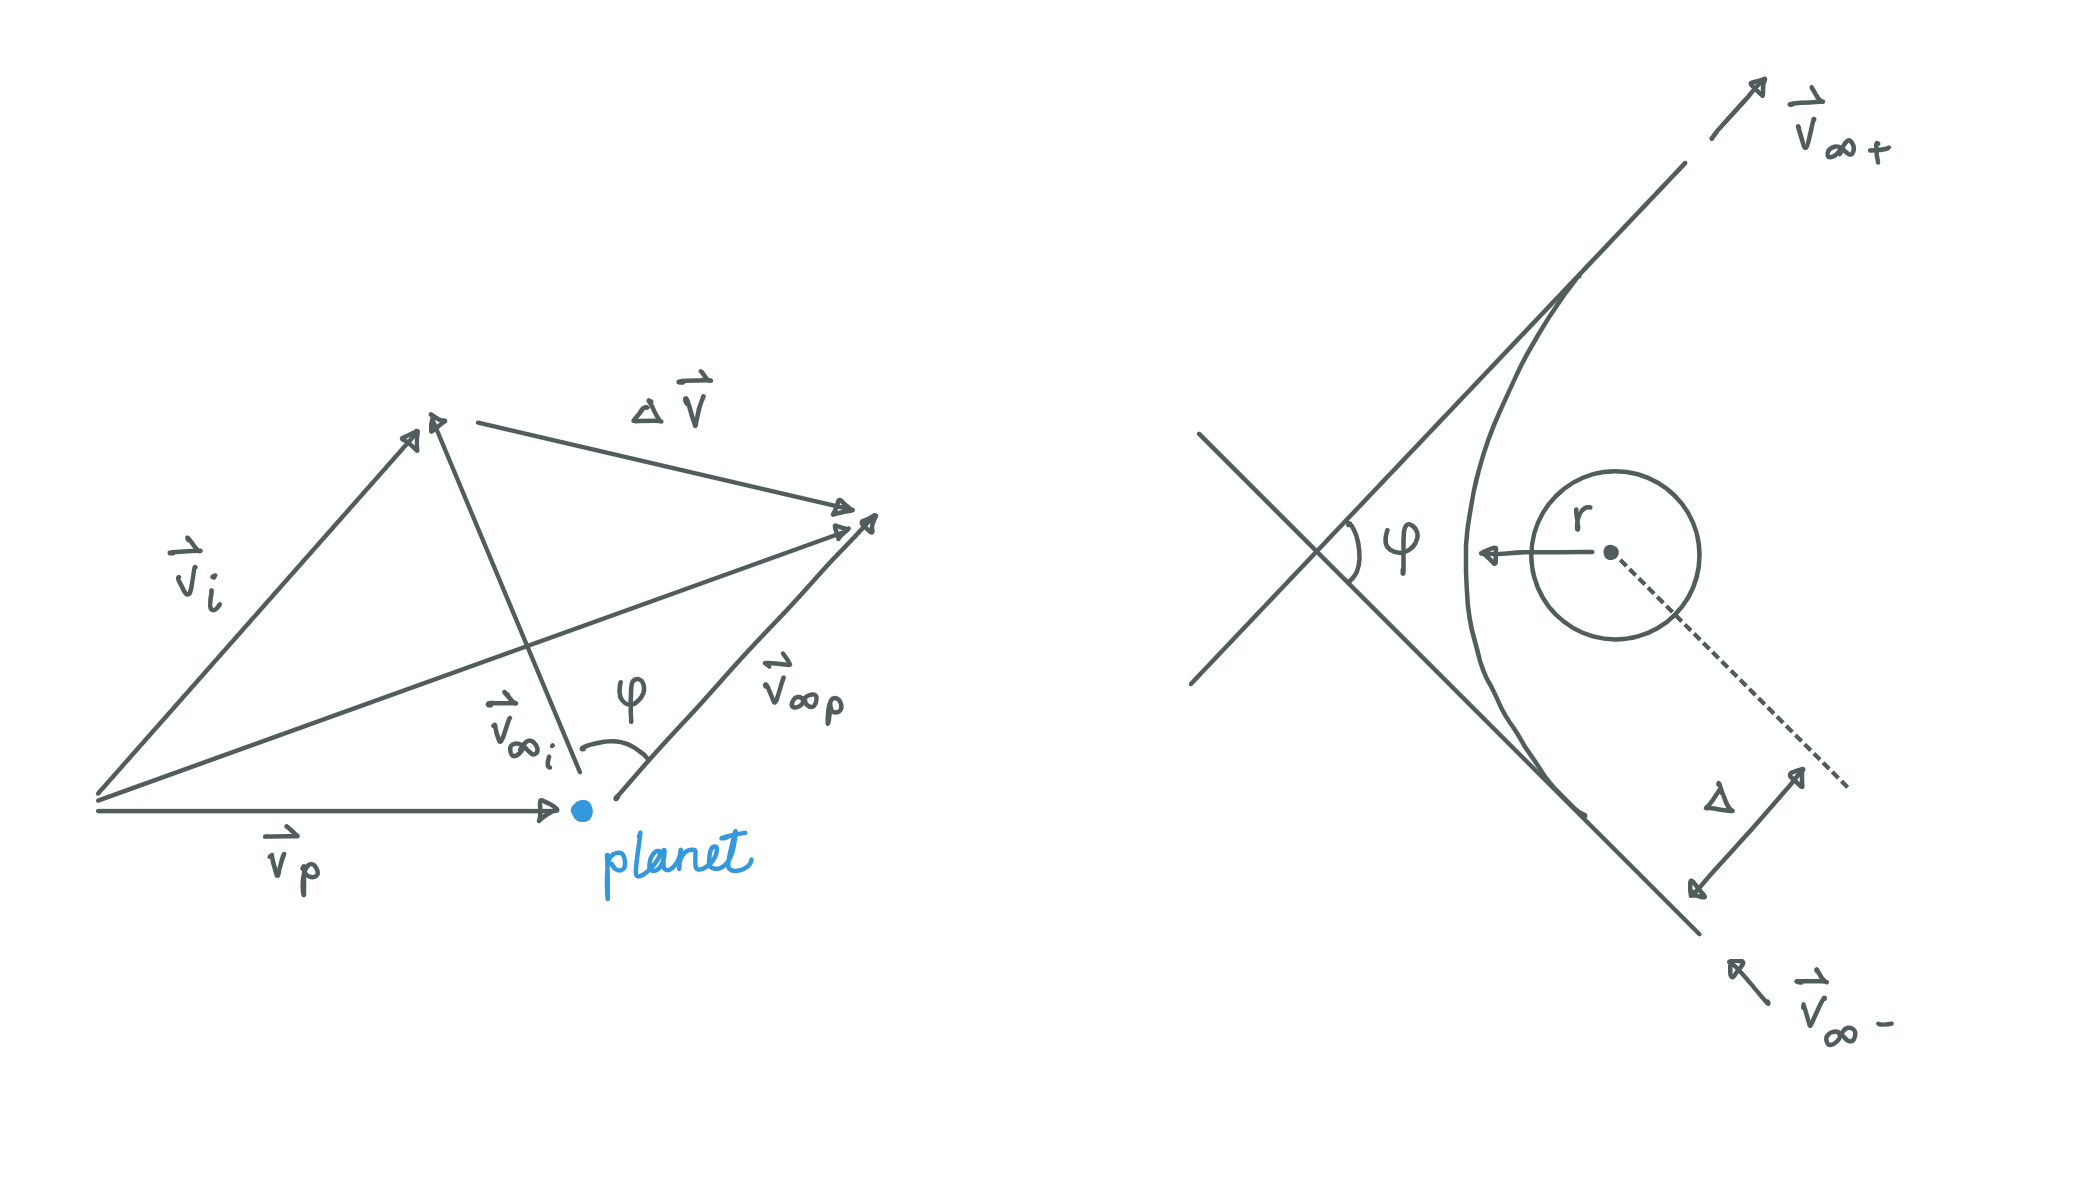 Δ v⃗
v⃗ᵢ
φ
v⃗∞ᵢ
v⃗∞ₚ
v⃗ₚ
planet
v⃗∞₊
r
φ
Δ
v⃗∞₋